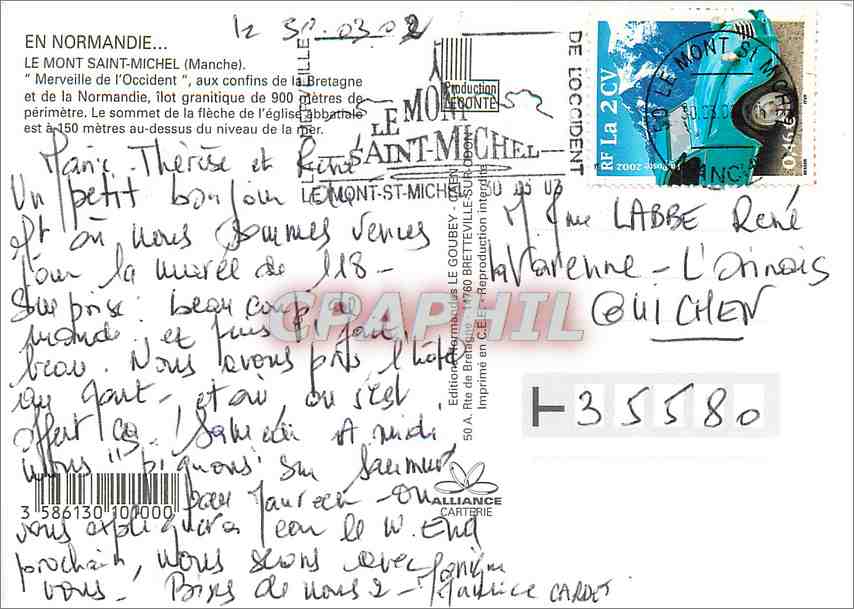 le 30.03.02
EN NORMANDIE...
LE MONT SAINT-MICHEL (Manche).
" Merveille de l'Occident ", aux confins de la Bretagne
et de la Normandie, îlot granitique de 900 mètres de
périmètre. Le sommet de la flèche de l'église abbatiale
est à 150 mètres au-dessus du niveau de la mer.
Marie-Thérèse et René
Un petit bonjour
où nous sommes venus
pour la marée de 118-
Surprise: beaucoup de
monde et puis il fait
beau. Nous avons pris l'hôtel
et où on s'est
offert ça! Samedi midi
nous
On
vous expliquera le W. End
prochain, nous serons avec
vous. Bises de nous 2 -
Maurice CARDET
LE MONT
SAINT-MICHEL
DE L'OCCIDENT
LE MONT-ST-MICHEL
30 03 02
Production
LECONTE
RF La 2 CV
0,46 €
La Poste 2002
50 LE MONT ST MICHEL
MANCHE
Editions Normandes LE GOUBEY - CAEN
50 A. Rte de Bretagne - 14760 BRETTEVILLE-SUR-ODON
Imprimé en C.E.E. - Reproduction interdite
M. Mme LABBE René
La Varenne -
GUICHEN
35580
CPAPHIL
3 586130 101000
ALLIANCE
CARTERIE